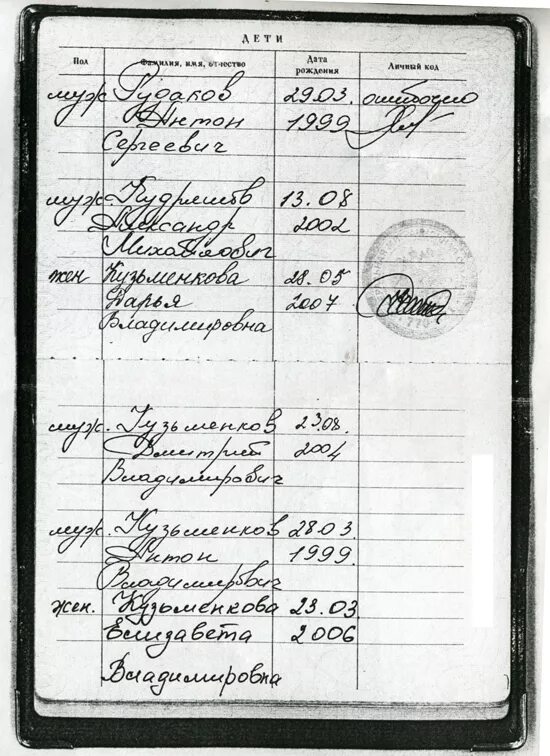 ДЕТИ
Пол Фамилия, имя, отчество Дата рождения Личный код
муж Рудаков 29.03. ошибочно
Антон 1999
Сергеевич
муж 13.08
Александр 2002
Михайлович
жен Кузьменкова 28.05
Дарья 2007
Владимировна
муж. Кузьменков 23.08.
Дмитрий 2004
Владимирович
муж. Кузьменков 28.03.
Антон 1999.
Владимирович
жен. Кузьменкова 23.03
Елизавета 2006
Владимировна